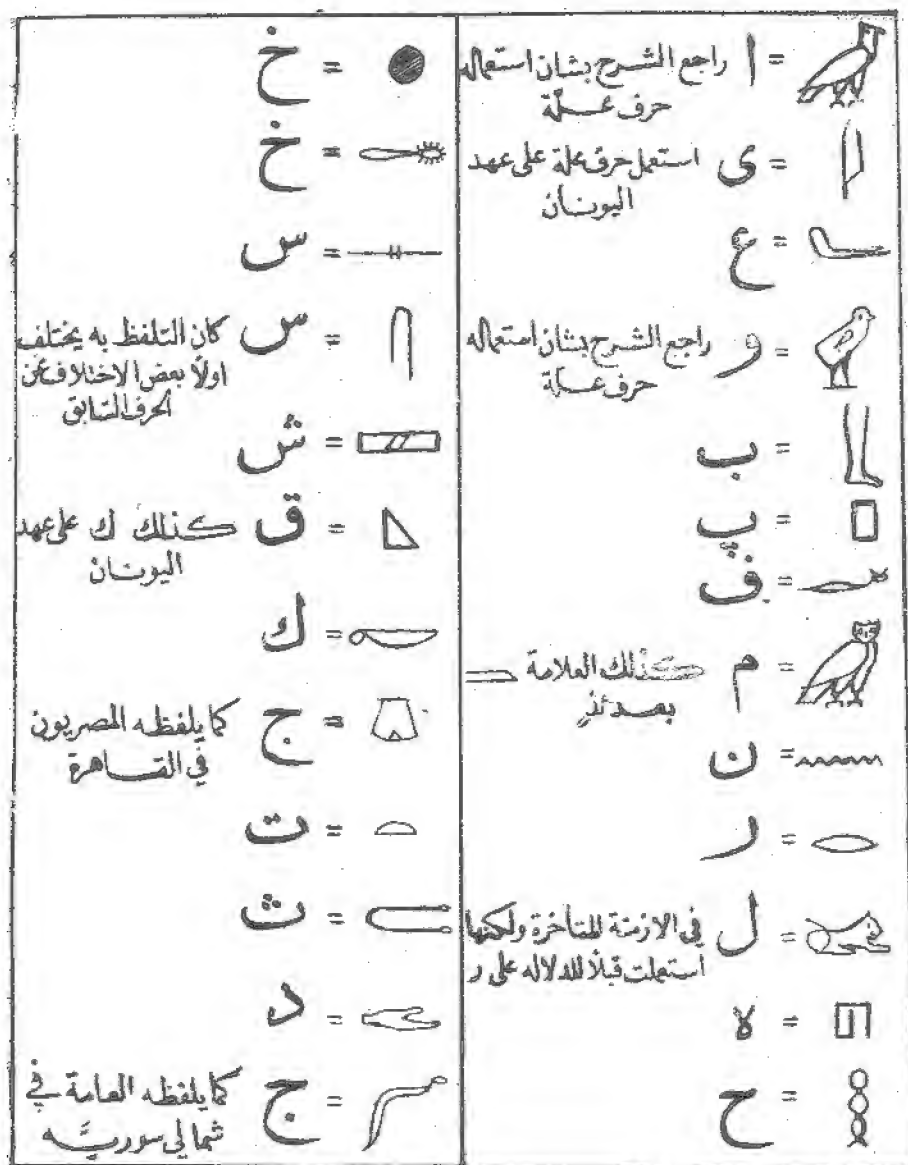 = ا راجع الشرح بشان استعماله
حرف علّة
= ى استعمل حرف علة على عهد
اليونان
= ع
= و راجع الشرح بشان استعماله
حرف علّة
= ب
= پ
= ف
= م كذلك العلامة
بعدئذٍ
= ن
= ر
= ل في الازمنة المتأخرة ولكنها
استعملت قبلاً للدلاله على ر
= ﻻ
= ح
= خ
= خ
= س
= س كان التلفظ به يختلف
اولاً بعض الاختلاف عن
الحرف السابق
= ش
= ق كذلك ك على عهد
اليونان
= ك
= ج كما يلفظه المصريون
في القاهرة
= ت
= ث
= د
= ج كما يلفظه العامة في
شمالي سوريّه